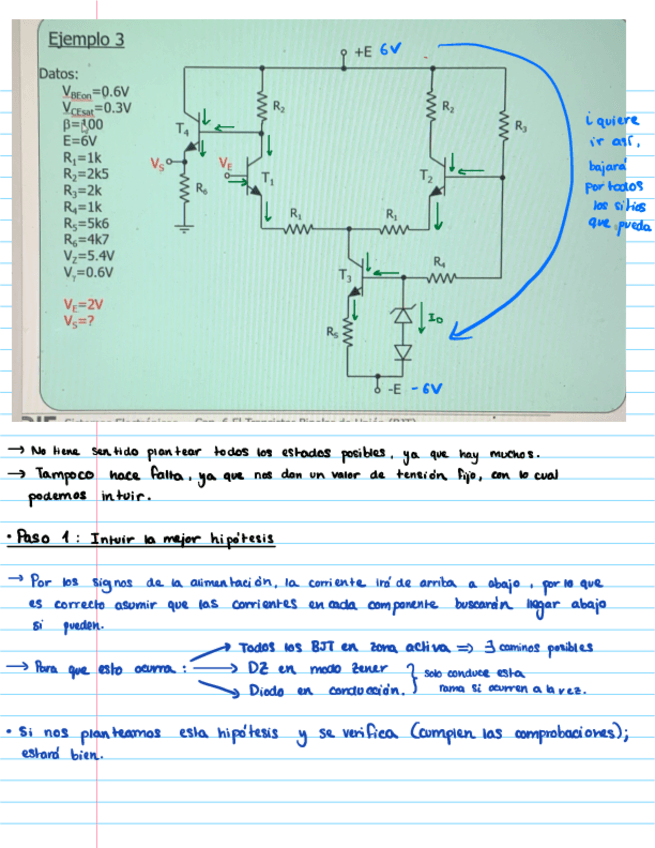 Ejemplo 3
+E 6V
Datos:
V_BEon=0.6V
V_CEsat=0.3V
β=100
E=6V
R1=1k
R2=2k5
R3=2k
R4=1k
R5=5k6
R6=4k7
VZ=5.4V
Vγ=0.6V
VE=2V
VS=?
R2
R2
R3
T4
VS
VE
T1
T2
R6
R1
R1
R4
T3
I_D
R5
-E -6V
¡ quiere
ir así,
bajará
por todos
los sitios
que pueda
→ No tiene sentido plantear todos los estados posibles, ya que hay muchos.
→ Tampoco hace falta, ya que nos dan un valor de tensión fijo, con lo cual
podemos intuir.
• Paso 1: Intuir la mejor hipótesis
→ Por los signos de la alimentación, la corriente irá de arriba a abajo, por lo que
es correcto asumir que las corrientes en cada componente buscarán llegar abajo
si pueden.
→ Todos los BJT en zona activa => ∃ caminos posibles
→ Para que esto ocurra: → DZ en modo zener } solo conduce esta
→ Diodo en conducción. } rama si ocurren a la vez.
• Si nos planteamos esta hipótesis y se verifica (cumplen las comprobaciones);
estará bien.